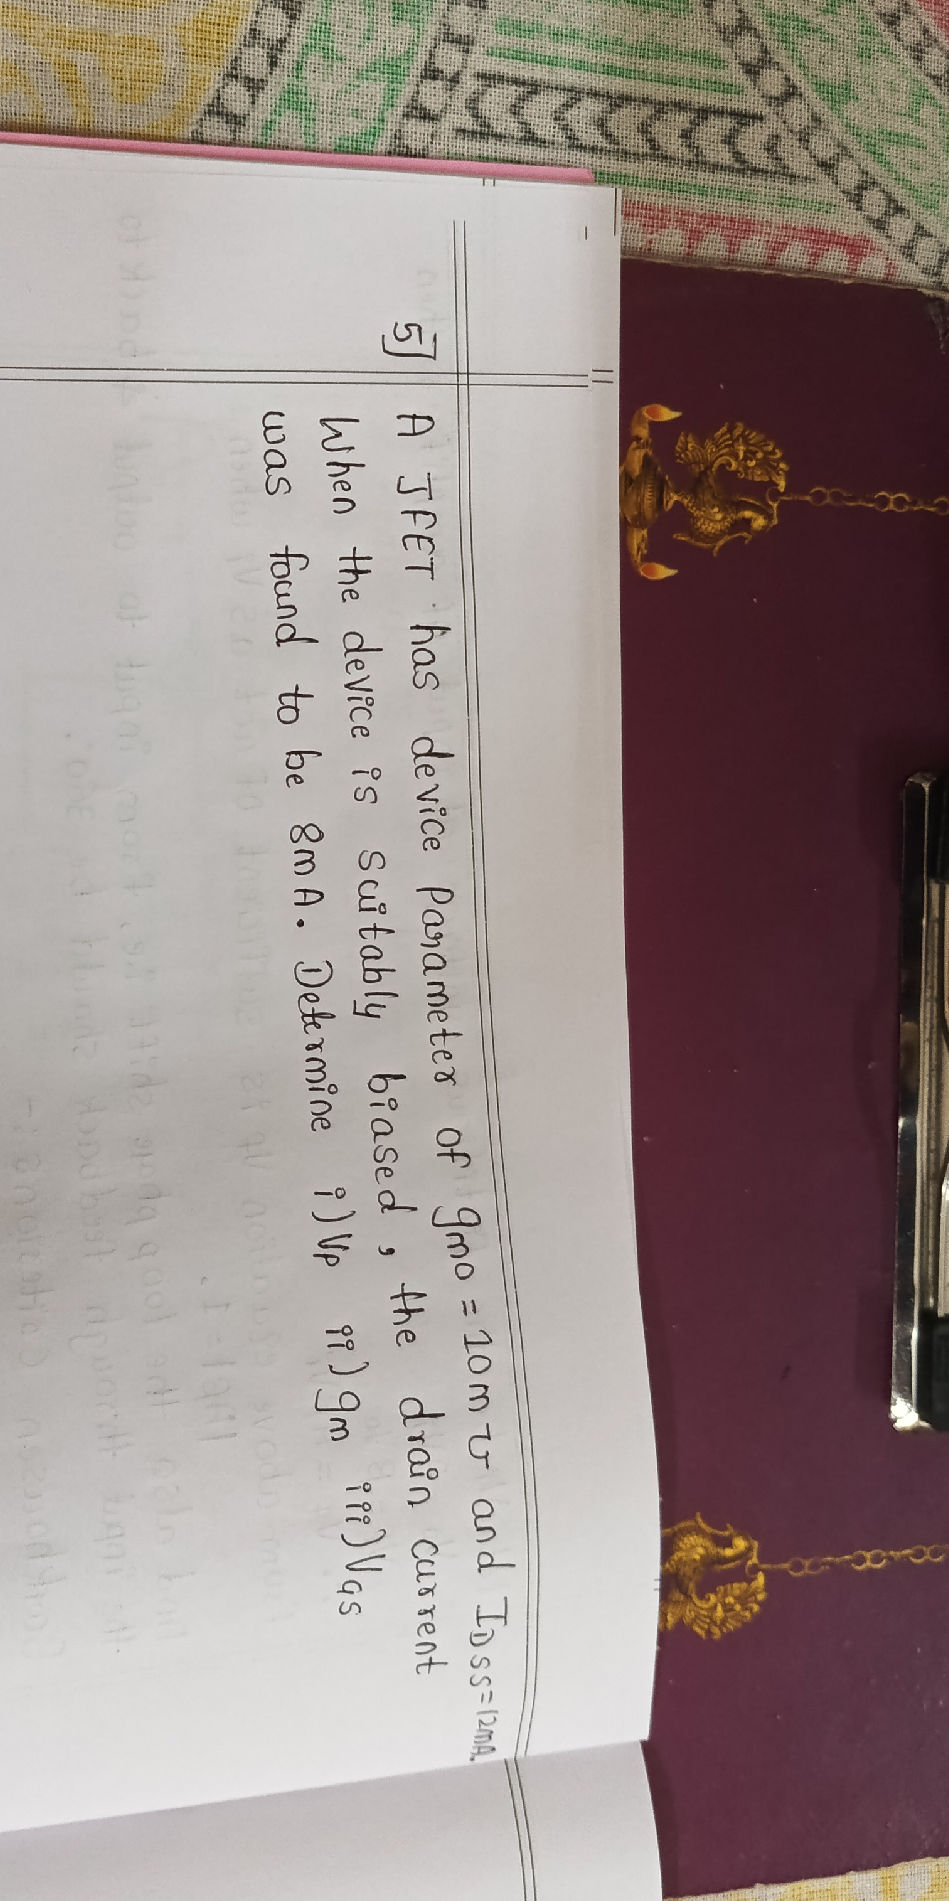 5] A JFET has device Parameter of gmo = 10m ℧ and IDSS=12mA.
When the device is suitably biased, the drain current
was found to be 8mA. Determine i) VP ii) gm iii) VGS